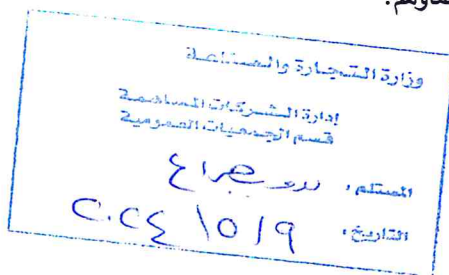 وزارة التجارة والصناعة
إدارة الشركات المساهمة
قسم الجمعيات العمومية
المستلم :
التاريخ : ٢٠٢٤ \ ٥ / ٩